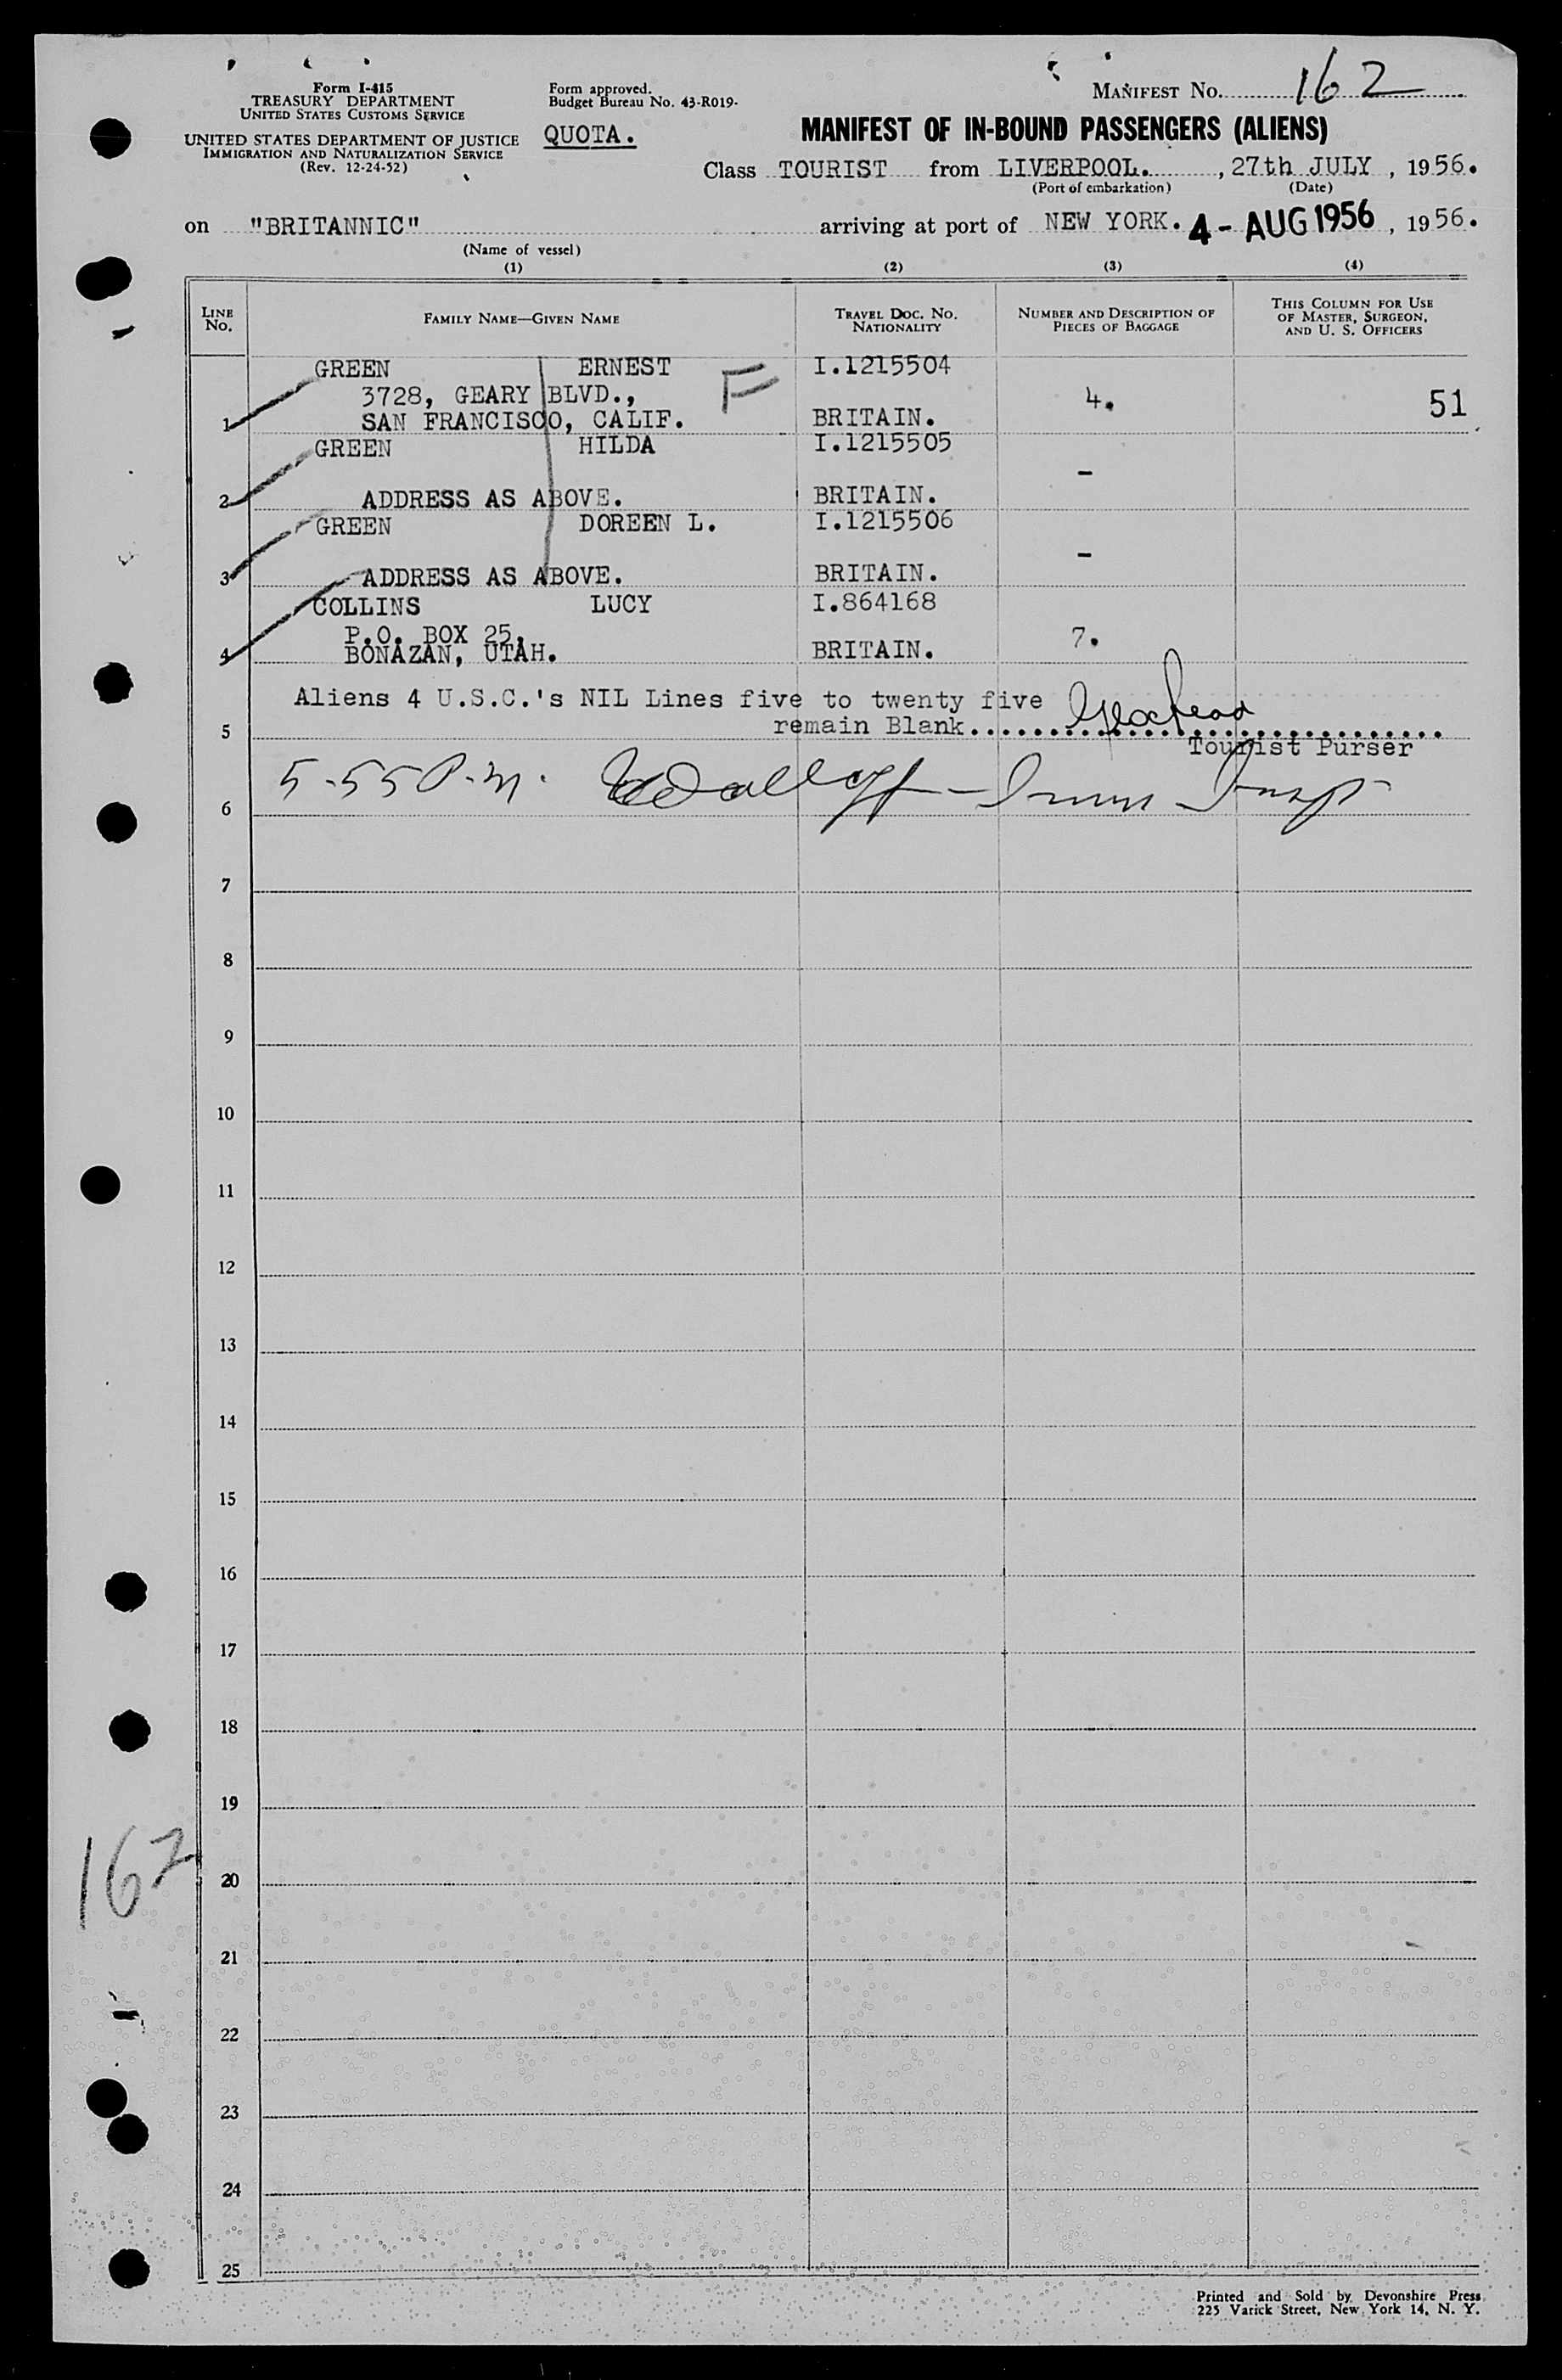 Form I-415
TREASURY DEPARTMENT
UNITED STATES CUSTOMS SERVICE
UNITED STATES DEPARTMENT OF JUSTICE
IMMIGRATION AND NATURALIZATION SERVICE
(Rev. 12-24-52)
Form approved.
Budget Bureau No. 43-R019-
QUOTA.
MANIFEST NO. 162
MANIFEST OF IN-BOUND PASSENGERS (ALIENS)
Class TOURIST from LIVERPOOL. , 27th JULY , 1956.
(Port of embarkation) (Date)
on "BRITANNIC" arriving at port of NEW YORK. 4 - AUG 1956 , 1956.
(Name of vessel)
(1) (2) (3) (4)
LINE NO. FAMILY NAME—GIVEN NAME TRAVEL DOC. NO. NATIONALITY NUMBER AND DESCRIPTION OF PIECES OF BAGGAGE THIS COLUMN FOR USE OF MASTER, SURGEON, AND U. S. OFFICERS
GREEN ERNEST F I.1215504
3728, GEARY BLVD., 4. 51
1 SAN FRANCISCO, CALIF. BRITAIN.
GREEN HILDA I.1215505
-
2 ADDRESS AS ABOVE. BRITAIN.
GREEN DOREEN L. I.1215506
-
3 ADDRESS AS ABOVE. BRITAIN.
COLLINS LUCY I.864168
P.O. BOX 25,
4 BONAZAN, UTAH. BRITAIN. 7.
Aliens 4 U.S.C.'s NIL Lines five to twenty five
5 remain Blank
Tourist Purser
5-55 P.M.
6
7
8
9
10
11
12
13
14
15
16
17
18
19
162
20
21
22
23
24
25
Printed and Sold by Devonshire Press
225 Varick Street, New York 14, N. Y.